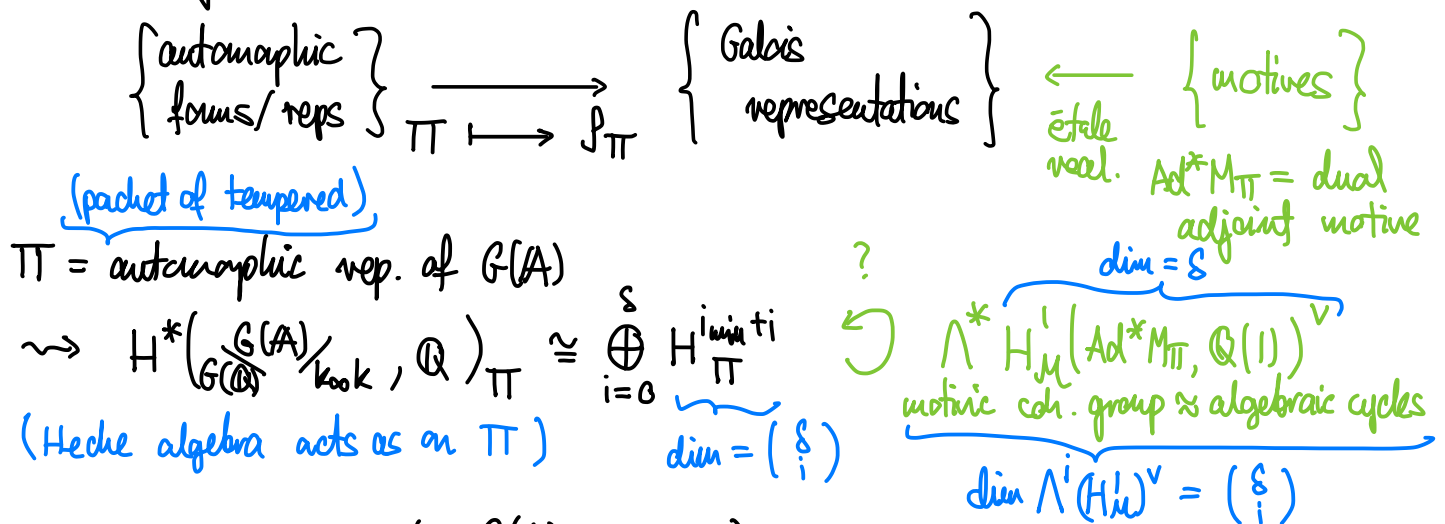 { automorphic forms/reps } ⟶ { Galois representations } ⟵ { motives }
Π ⟼ ρ_Π
étale real.
Ad*M_Π = dual adjoint motive
(packet of tempered)
Π = automorphic rep. of G(𝔸)
⇝ H*(G(ℚ)\G(𝔸)/k∞k, ℚ)_Π ≅ ⊕_{i=0}^{δ} H_Π^{i_min+i}
?
dim = δ
Λ* H¹_M(Ad*M_Π, ℚ(1))^∨
(Hecke algebra acts as on Π)
dim = (δ i)
motivic coh. group ≈ algebraic cycles
dim Λ^i(H¹_M)^∨ = (δ i)